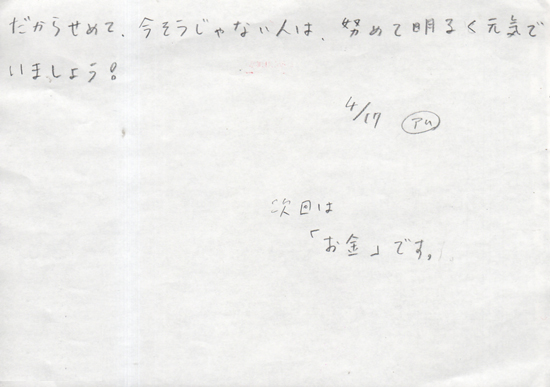 だからせめて、今そうじゃない人は、努めて明るく元気で
いましょう!
4/17 アム
次回は
「お金」です。